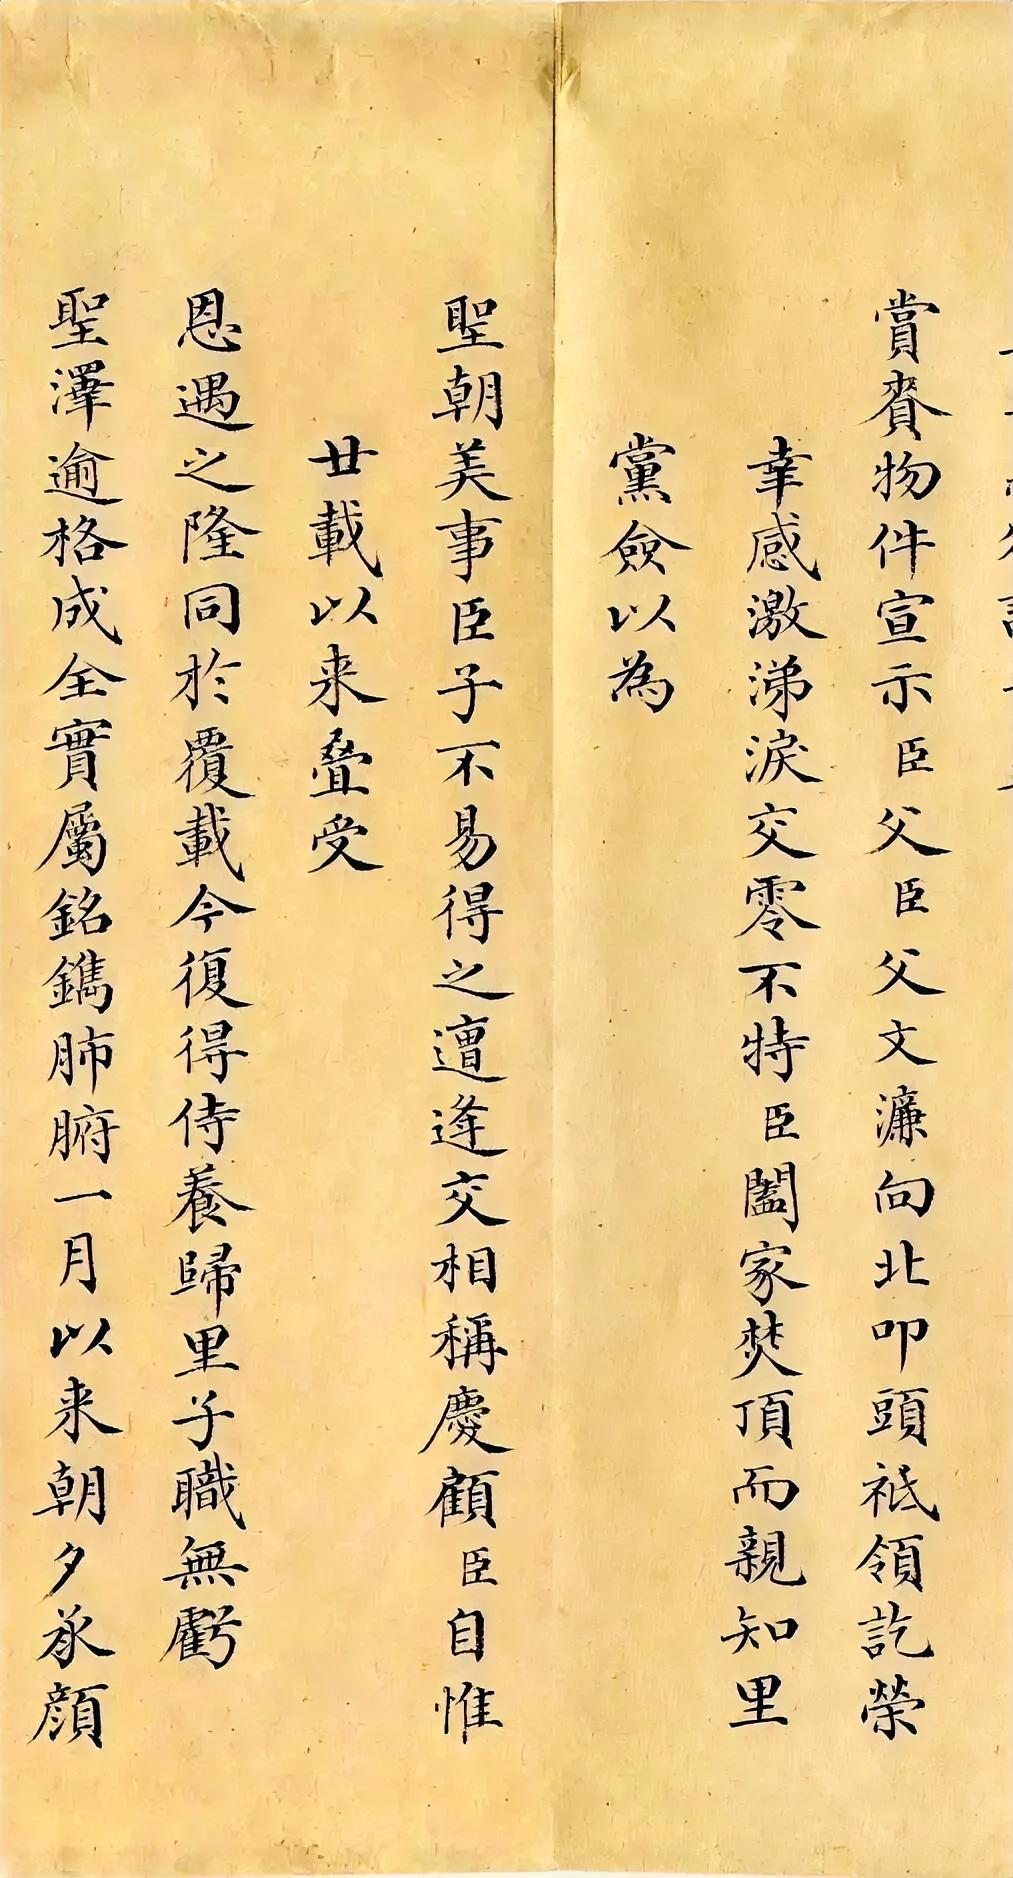 賞賚物件宣示臣父臣父文濂向北叩頭祗領訖榮
幸感激涕淚交零不特臣闔家焚頂而親知里
黨僉以為
聖朝美事臣子不易得之遭逢交相稱慶顧臣自惟
廿載以来疊受
恩遇之隆同於覆載今復得侍養歸里子職無虧
聖澤逾格成全實屬銘鐫肺腑一月以来朝夕承顔